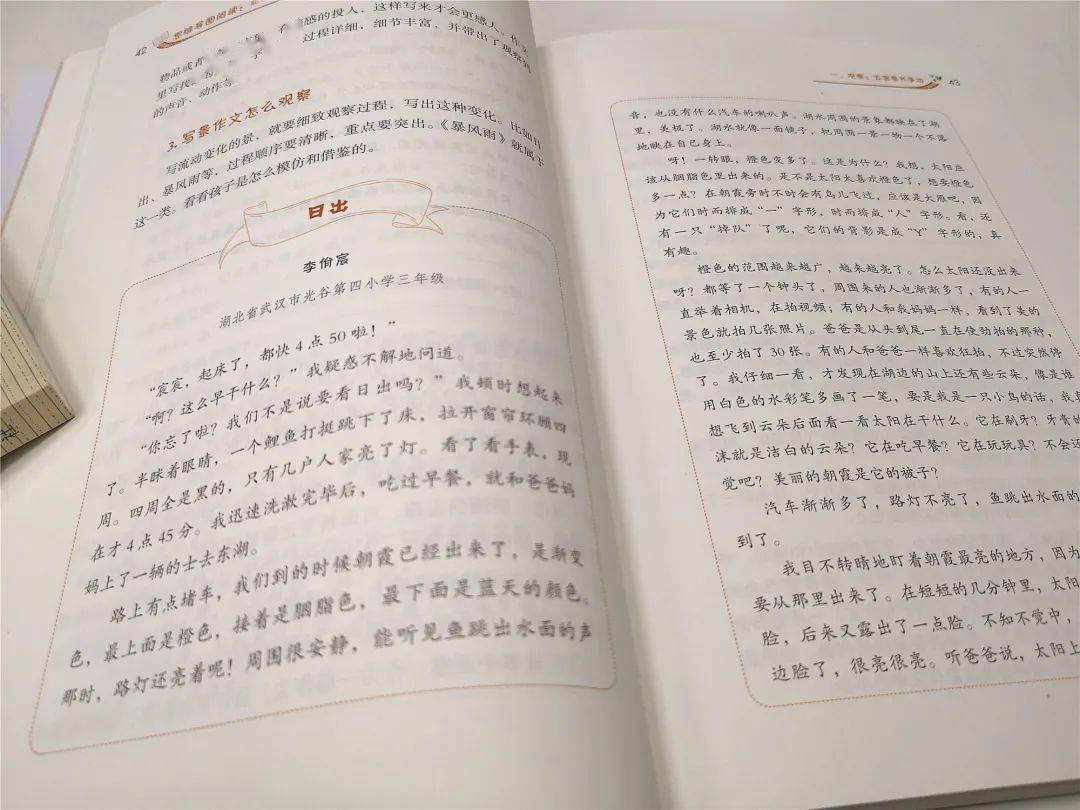 42 思维导图阅读：
感的投入，这样写来才会更感人。作文
物品或者
过程详细，细节丰富，并带出了观察到
里写找、
的声音、动作等
3. 写景作文怎么观察
写流动变化的景，就要细致观察过程，写出这种变化。比如日
出、暴风雨等，过程顺序要清晰，重点要突出。《暴风雨》就属于
这一类。看看孩子是怎么模仿和借鉴的。
日出
李佾宸
湖北省武汉市光谷第四小学三年级
“宸宸，起床了，都快4点50啦！”
“啊？这么早干什么？”我疑惑不解地问道。
“你忘了啦？我们不是说要看日出吗？”我顿时想起来
了。半眯着眼睛，一个鲤鱼打挺跳下了床，拉开窗帘环顾四
周。四周全是黑的，只有几户人家亮了灯。看了看手表，现
在才4点45分。我迅速洗漱完毕后，吃过早餐，就和爸爸妈
妈上了一辆的士去东湖。
路上有点堵车，我们到的时候朝霞已经出来了，是渐变
色，最上面是橙色，接着是胭脂色，最下面是蓝天的颜色。
那时，路灯还亮着呢！周围很安静，能听见鱼跳出水面的声
43
音，也没有什么汽车的喇叭声。湖水周围的景象都映在了湖
里，美极了。湖水就像一面镜子，把周围一景一物一个不落
地映在自己身上。
呀！一转眼，橙色变多了。这是为什么？我想，太阳应
该从胭脂色里出来的。是不是太阳太喜欢橙色了，想要橙色
多一点？在朝霞旁时不时会有鸟儿飞过，应该是大雁吧，因
为它们时而排成“一”字形，时而排成“人”字形。看，还
有一只“掉队”了呢，它们的背影是成“Y”字形的，真
有趣。
橙色的范围越来越广，越来越亮了。怎么太阳还没出来
呀？都等了一个钟头了，周围来的人也渐渐多了，有的人一
直举着相机，在拍视频；有的人和我妈妈一样，看到了美的
景色就拍几张照片。爸爸是从头到尾一直在使劲拍的那种，
也至少拍了30张。有的人和爸爸一样喜欢狂拍，不过突然停
了。我仔细一看，才发现在湖边的山上还有些云朵，像是谁
用白色的水彩笔多画了一笔，要是我是一只小鸟的话，我
想飞到云朵后面看一看太阳在干什么。它在刷牙？牙膏的
沫就是洁白的云朵？它在吃早餐？它在玩玩具？不会还
觉吧？美丽的朝霞是它的被子？
汽车渐渐多了，路灯不亮了，鱼跳出水面的
到了。
我目不转睛地盯着朝霞最亮的地方，因为
要从那里出来了。在短短的几分钟里，太阳
脸，后来又露出了一点脸。不知不觉中，
边脸了，很亮很亮。听爸爸说，太阳上